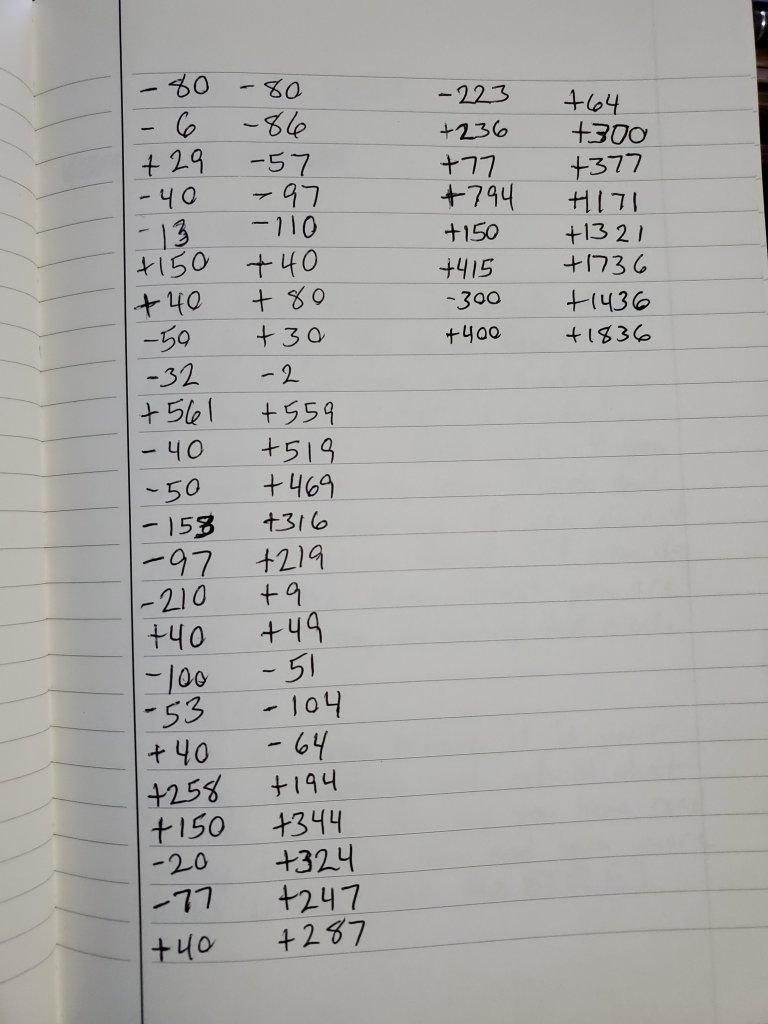 - 80 - 80
- 6 - 86
+ 29 - 57
- 40 - 97
- 13 - 110
+150 + 40
+ 40 + 80
- 50 + 30
- 32 - 2
+ 561 + 559
- 40 + 519
- 50 + 469
- 153 + 316
- 97 + 219
- 210 + 9
+ 40 + 49
- 100 - 51
- 53 - 104
+ 40 - 64
+258 +194
+150 +344
- 20 +324
- 77 +247
+40 +287
-223 +64
+236 +300
+77 +377
+794 +1171
+150 +1321
+415 +1736
-300 +1436
+400 +1836